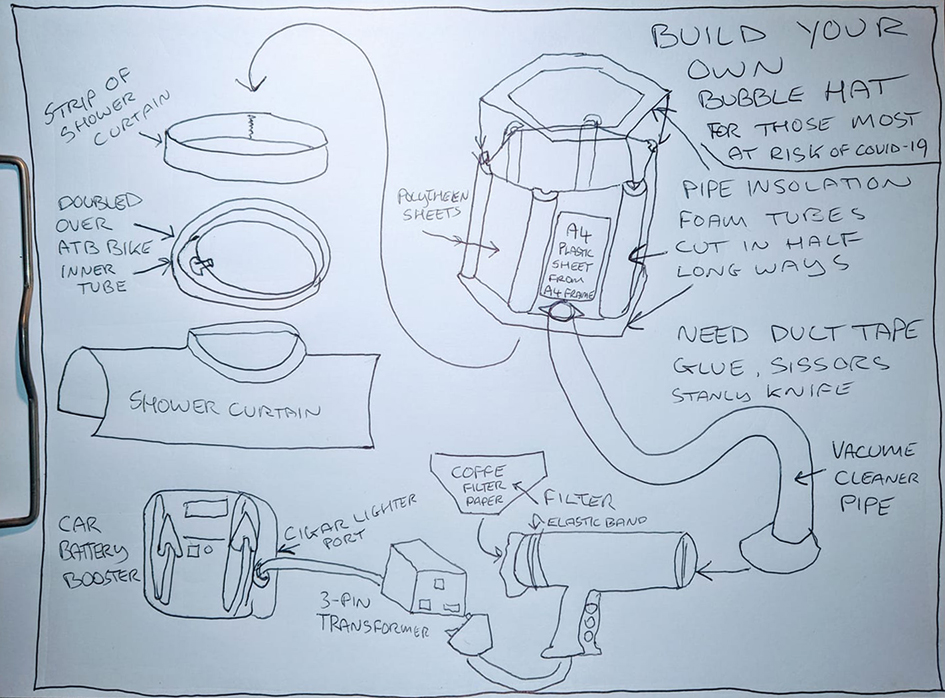 BUILD YOUR
OWN
BUBBLE HAT
FOR THOSE MOST
AT RISK OF COVID-19
STRIP OF
SHOWER
CURTAIN
DOUBLED
OVER
ATB BIKE
INNER
TUBE
SHOWER CURTAIN
POLYTHEEN
SHEETS
A4
PLASTIC
SHEET
FROM
A4 FRAME
PIPE INSOLATION
FOAM TUBES
CUT IN HALF
LONG WAYS
NEED DUCT TAPE
GLUE, SISSORS
STANLY KNIFE
VACUME
CLEANER
PIPE
COFFE
FILTER
PAPER
FILTER
ELASTIC BAND
CAR
BATTERY
BOOSTER
CIGAR LIGHTER
PORT
3-PIN
TRANSFORMER